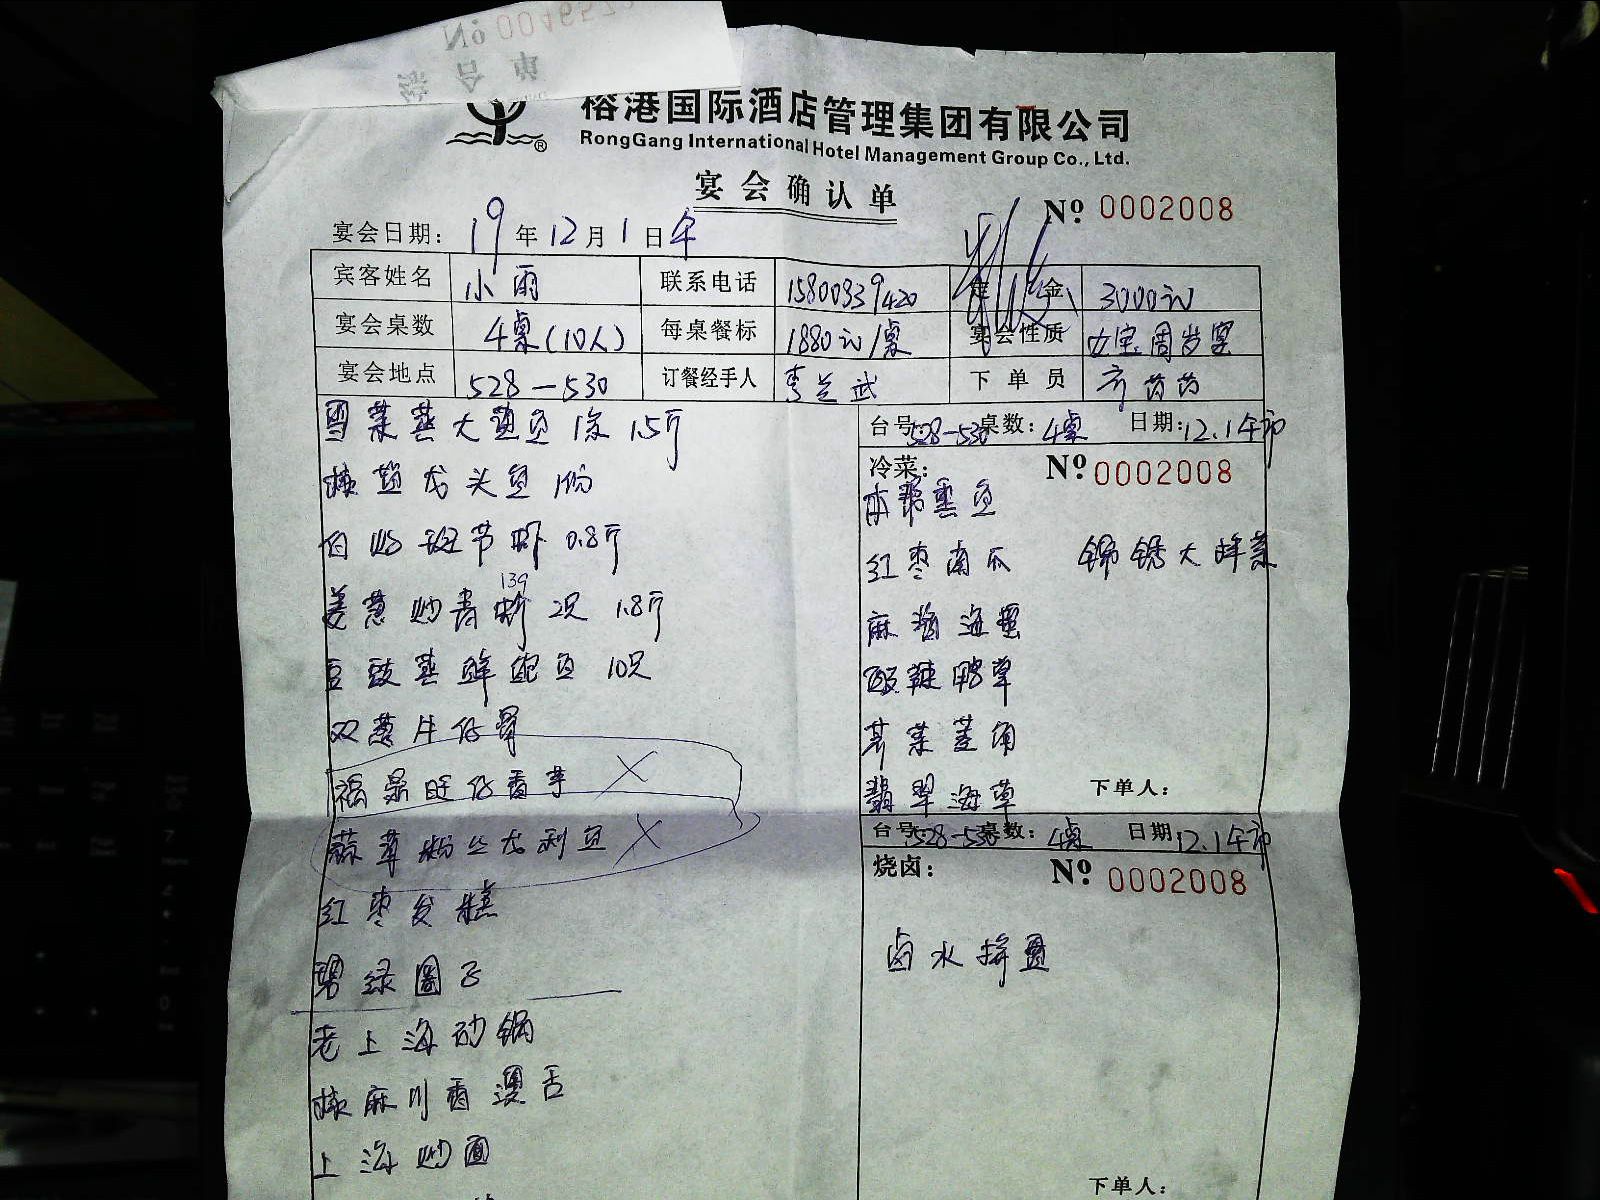 No 004657
综合单
榕港国际酒店管理集团有限公司
RongGang International Hotel Management Group Co., Ltd.
宴会确认单
No 0002008
宴会日期: 19年12月1日午
宾客姓名 小雨 联系电话 15800339420 定金 3000元
宴会桌数 4桌(10人) 每桌餐标 1880元/桌 宴会性质 女宝周岁宴
宴会地点 528—530 订餐经手人 李兰武 下单员
雪菜蒸大黄鱼1条 1.5斤
椒盐龙头鱼1份
白灼斑节虾 0.8斤
139
姜葱炒青蟹 2只 1.8斤
豆豉蒸鲜鲍鱼 10只
双葱牛仔骨
福果旺仔香芋 X
蒜茸粉丝龙利鱼 X
红枣发糕
碧绿圆子
老上海砂锅
椒麻川香
上海炒面
台号: 528-530 桌数: 4桌 日期: 12.1午市
冷菜:
No 0002008
本帮熏鱼
红枣南瓜 锦绣大拌菜
麻酱海蜇
酸辣鸭掌
荠菜菱角
翡翠海草
下单人:
台号: 528-530 桌数: 4桌 日期: 12.1午市
烧卤:
No 0002008
卤水拼盘
下单人: